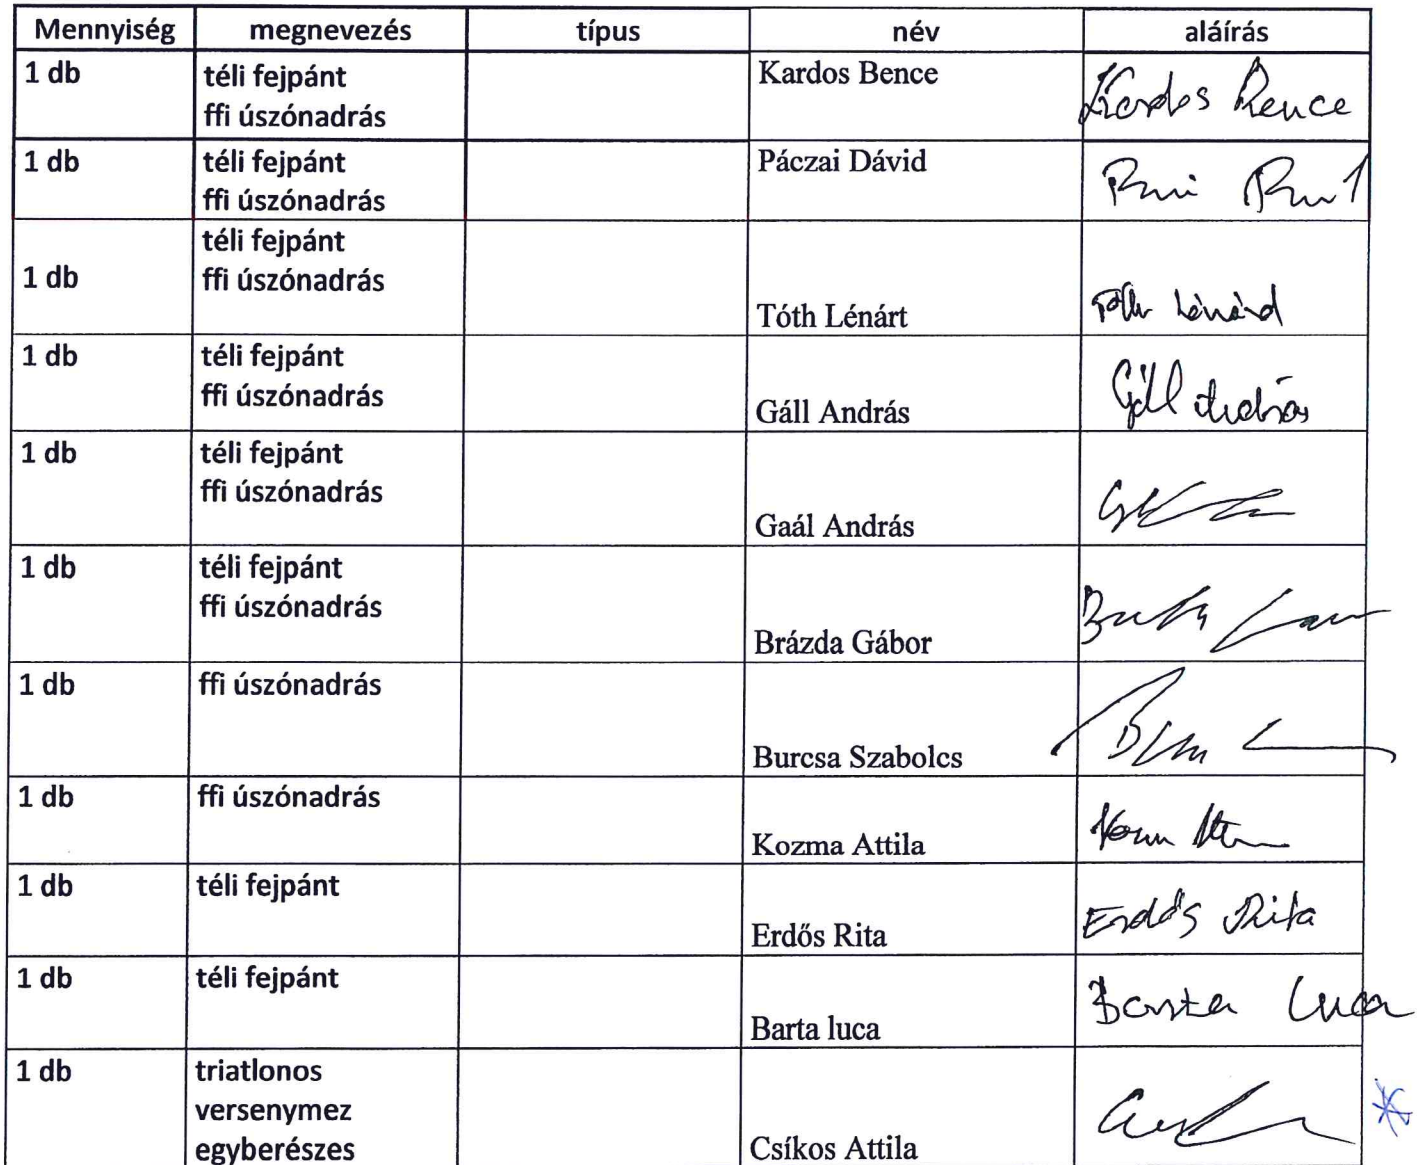 Mennyiség megnevezés típus név aláírás
1 db téli fejpánt Kardos Bence Kardos Bence
ffi úszónadrás
1 db téli fejpánt Páczai Dávid
ffi úszónadrás
téli fejpánt
1 db ffi úszónadrás
Tóth Lénárt Tóth Lénárd
1 db téli fejpánt
ffi úszónadrás
Gáll András Gáll András
1 db téli fejpánt
ffi úszónadrás
Gaál András
1 db téli fejpánt
ffi úszónadrás
Brázda Gábor
1 db ffi úszónadrás
Burcsa Szabolcs
1 db ffi úszónadrás
Kozma Attila
1 db téli fejpánt
Erdős Rita Erdős Rita
1 db téli fejpánt
Barta luca Barta Luca
1 db triatlonos
versenymez
egyberészes Csíkos Attila